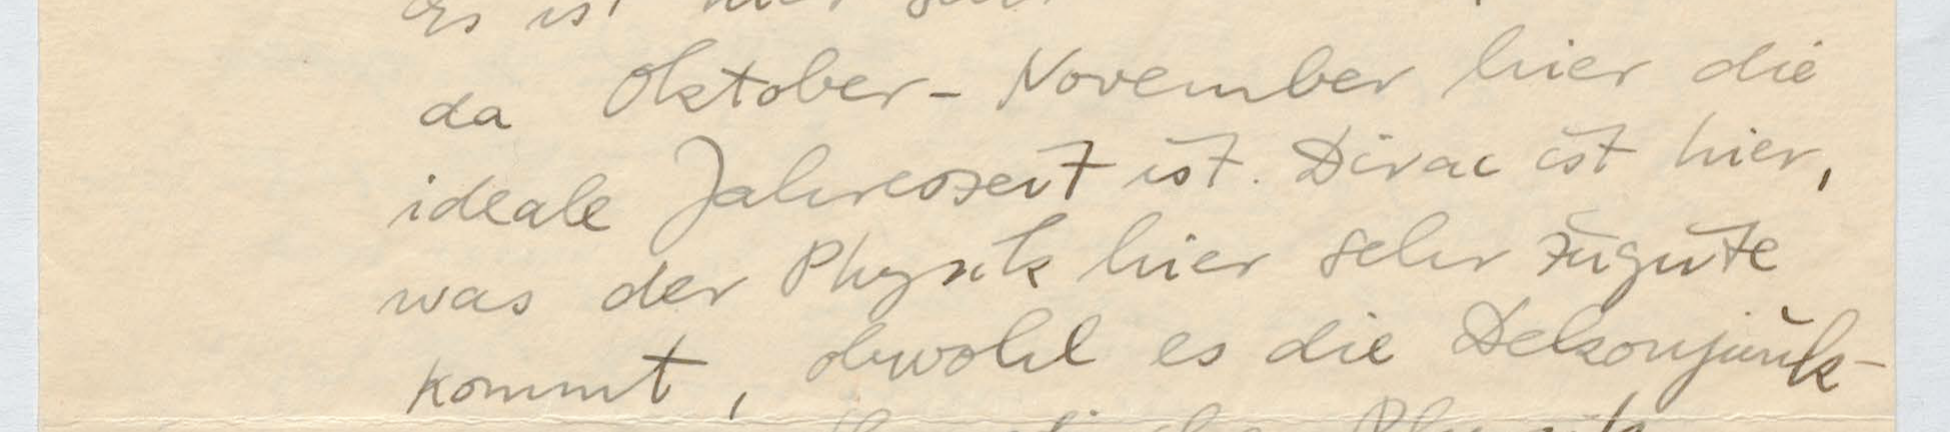 Es ist hier sehr
da Oktober - November hier die
ideale Jahreszeit ist. Dirac ist hier,
was der Physik hier sehr zugute
kommt, obwohl es die Dekonjunk-
Physik